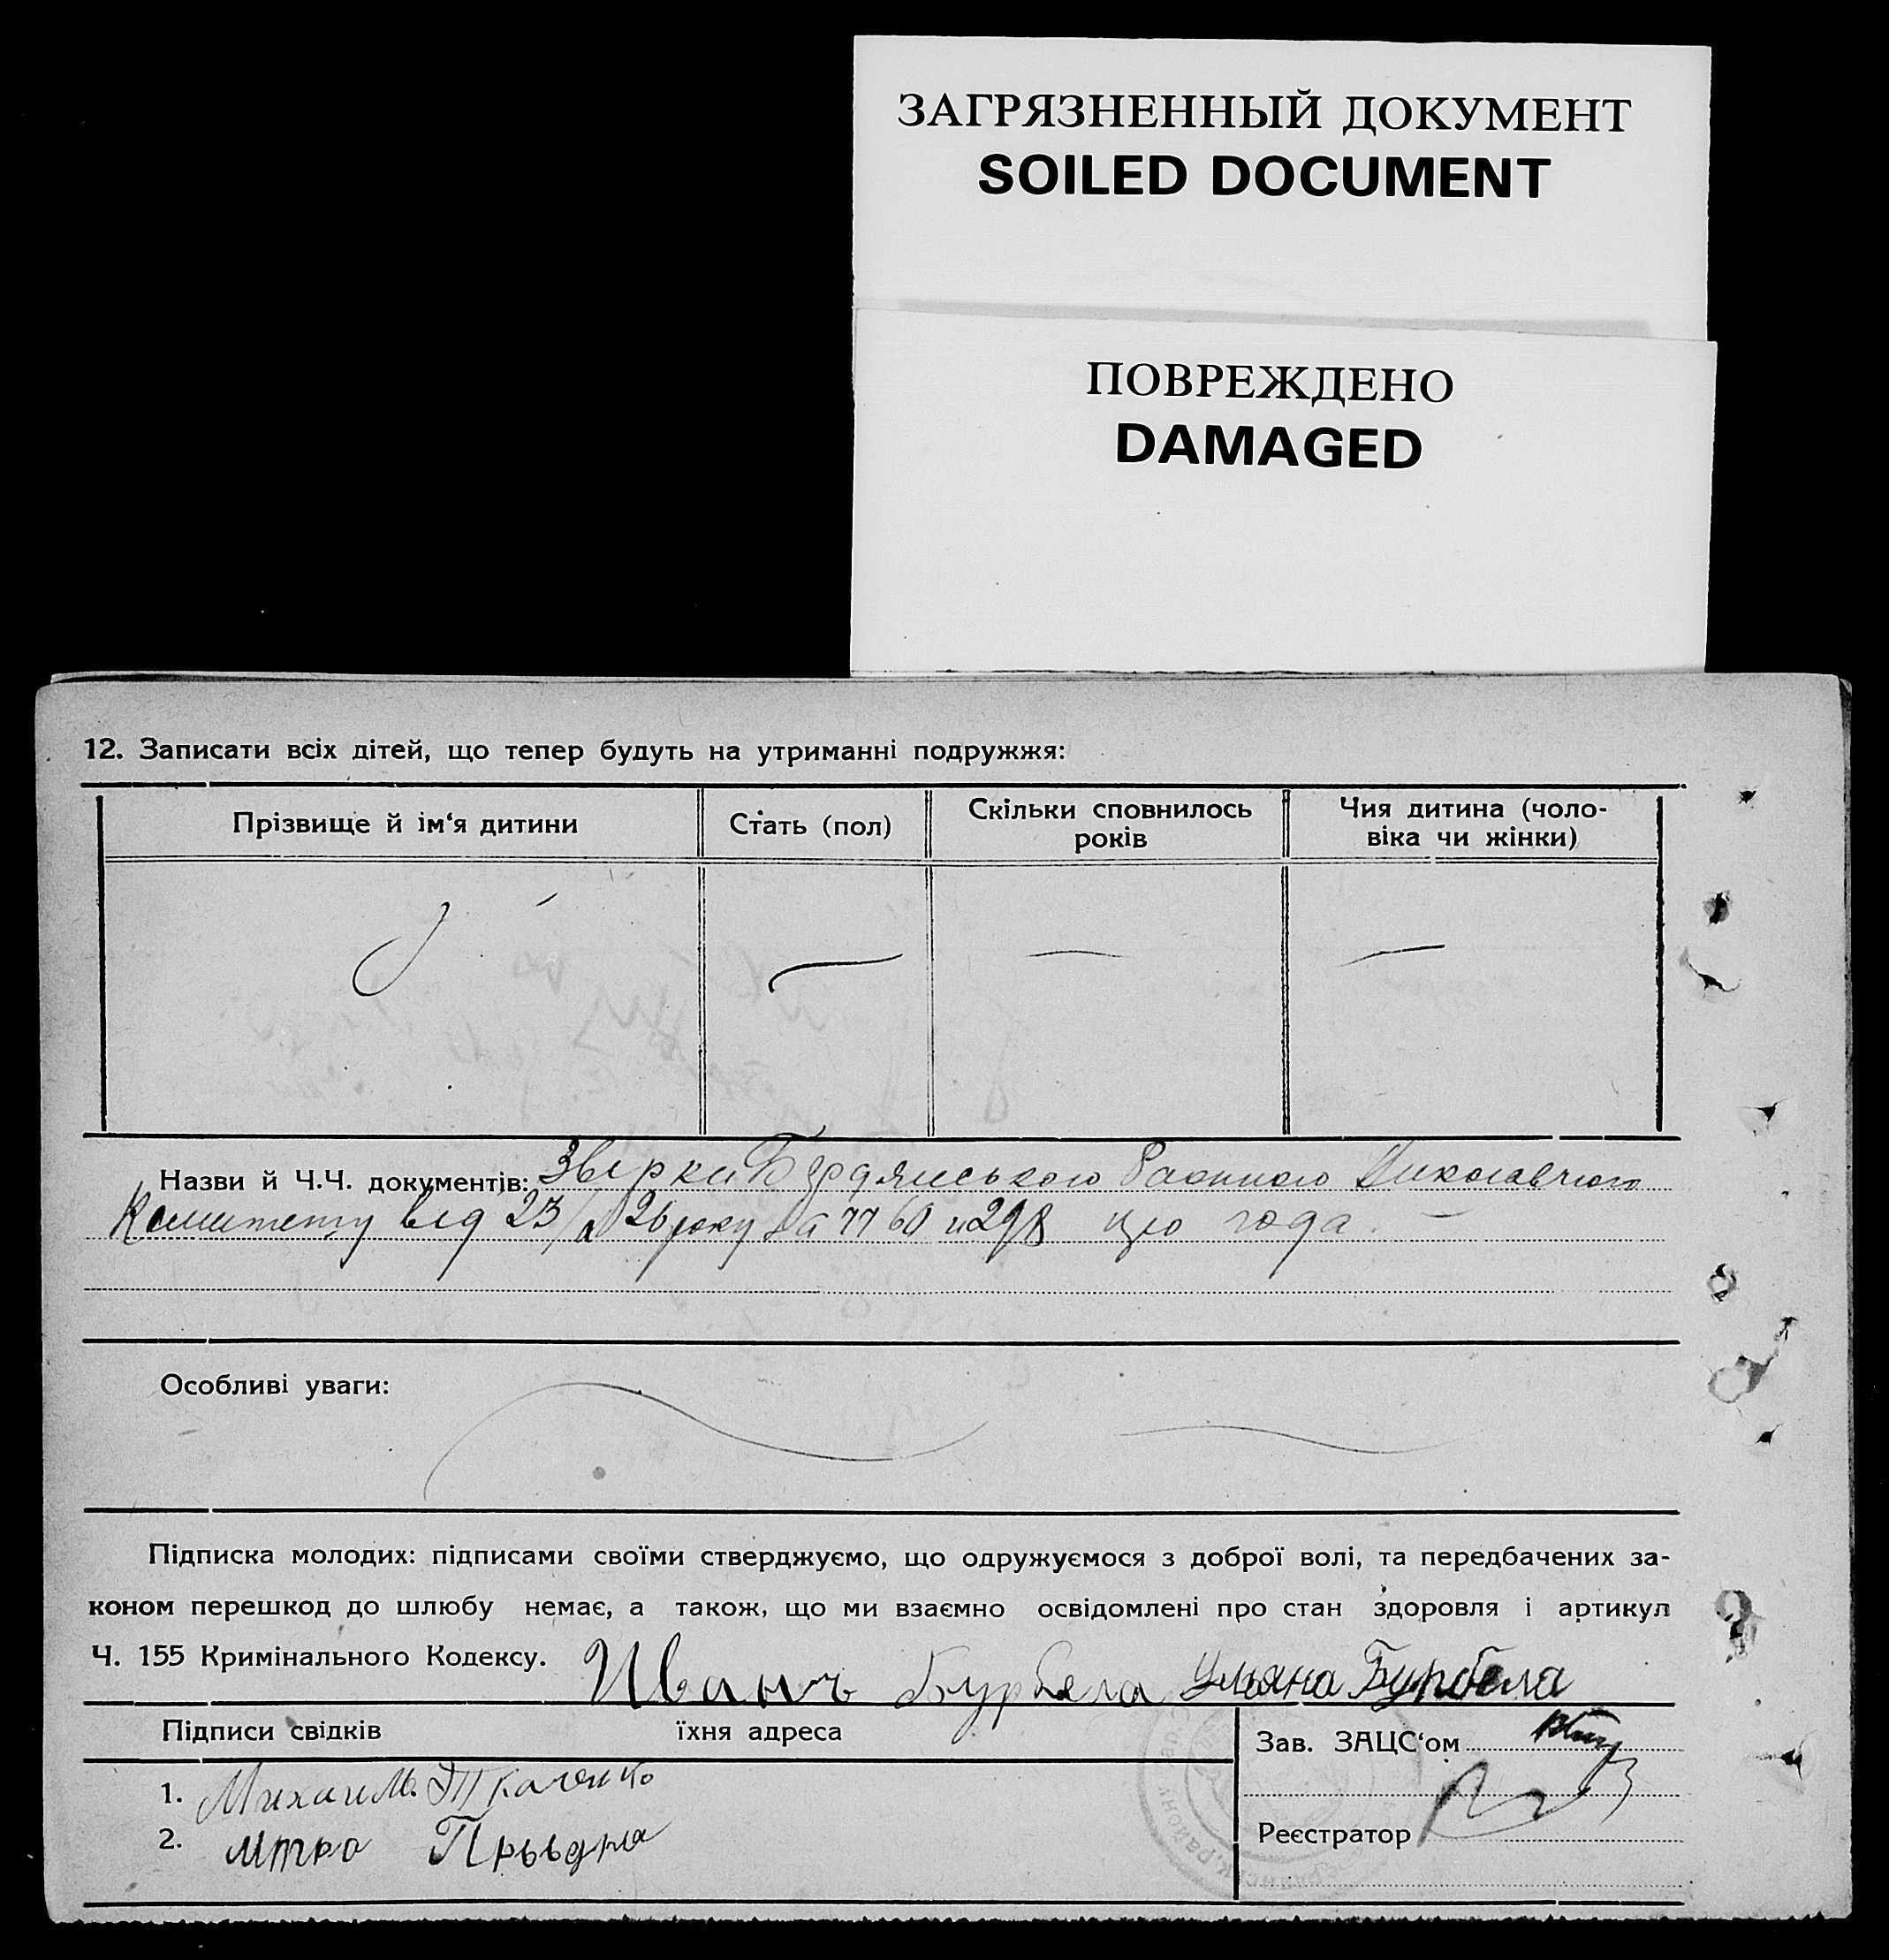 ЗАГРЯЗНЕННЫЙ ДОКУМЕНТ
SOILED DOCUMENT
ПОВРЕЖДЕНО
DAMAGED
12. Записати всіх дітей, що тепер будуть на утриманні подружжя:
Прізвище й ім‘я дитини Стать (пол) Скільки сповнилось років Чия дитина (чоло-віка чи жінки)
Назви й Ч.Ч. документів: Бердянського Виконавчого
Комитету від 23/ 26 року за 7760 и 298 цю года.
Особливі уваги:
Підписка молодих: підписами своїми стверджуємо, що одружуємося з доброї волі, та передбачених за-
коном перешкод до шлюбу немає, а також, що ми взаємно освідомлені про стан здоровля і артикул
Ч. 155 Кримінального Кодексу. Иванъ Бурбела Уляна Бурбела
Підписи свідків їхня адреса
Зав. ЗАЦС‘ом
1. Михаил Ткаченко
2. Мтро
Реєстратор